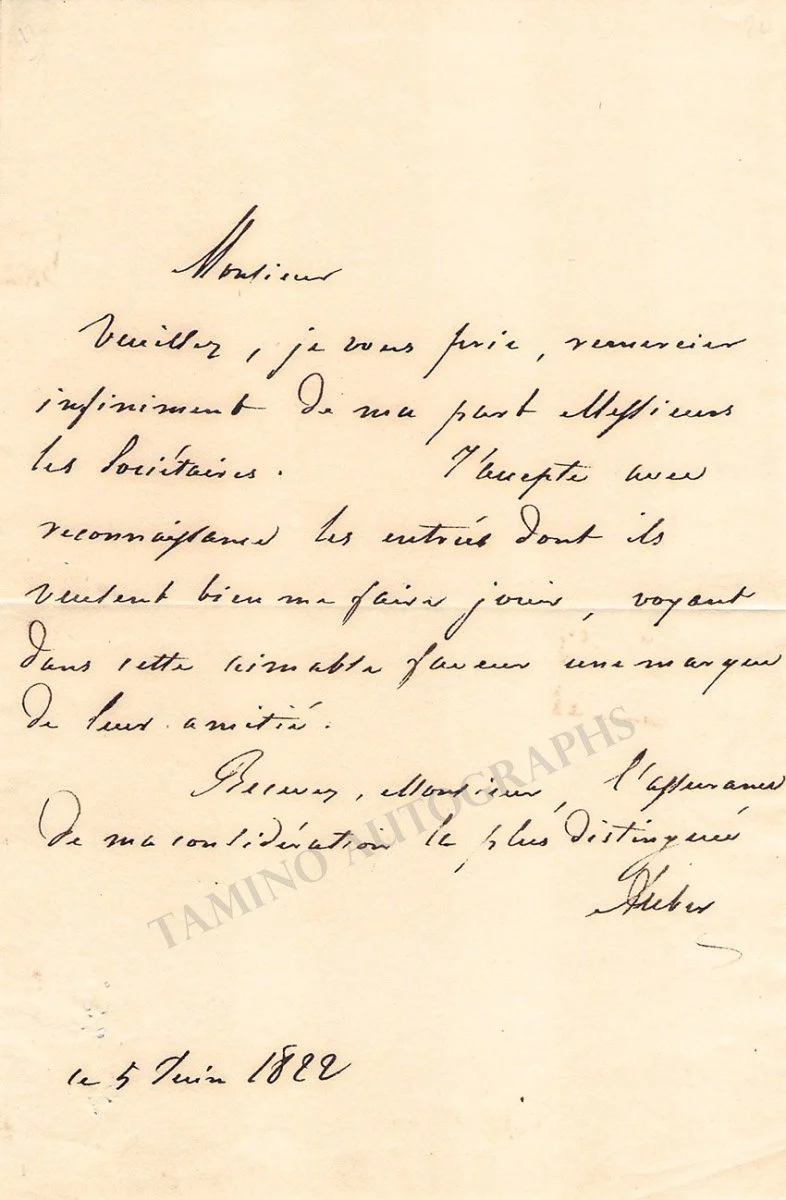 Monsieur
Veuillez, je vous prie, remercier
infiniment de ma part Messieurs
les Sociétaires. J'accepte avec
reconnaissance les entrées dont ils
veulent bien me faire jouir, voyant
dans cette aimable faveur une marque
de leur amitié.
Recevez, Monsieur, l'assurance
de ma considération la plus distinguée
Auber
le 5 Juin 1822
TAMINO AUTOGRAPHS